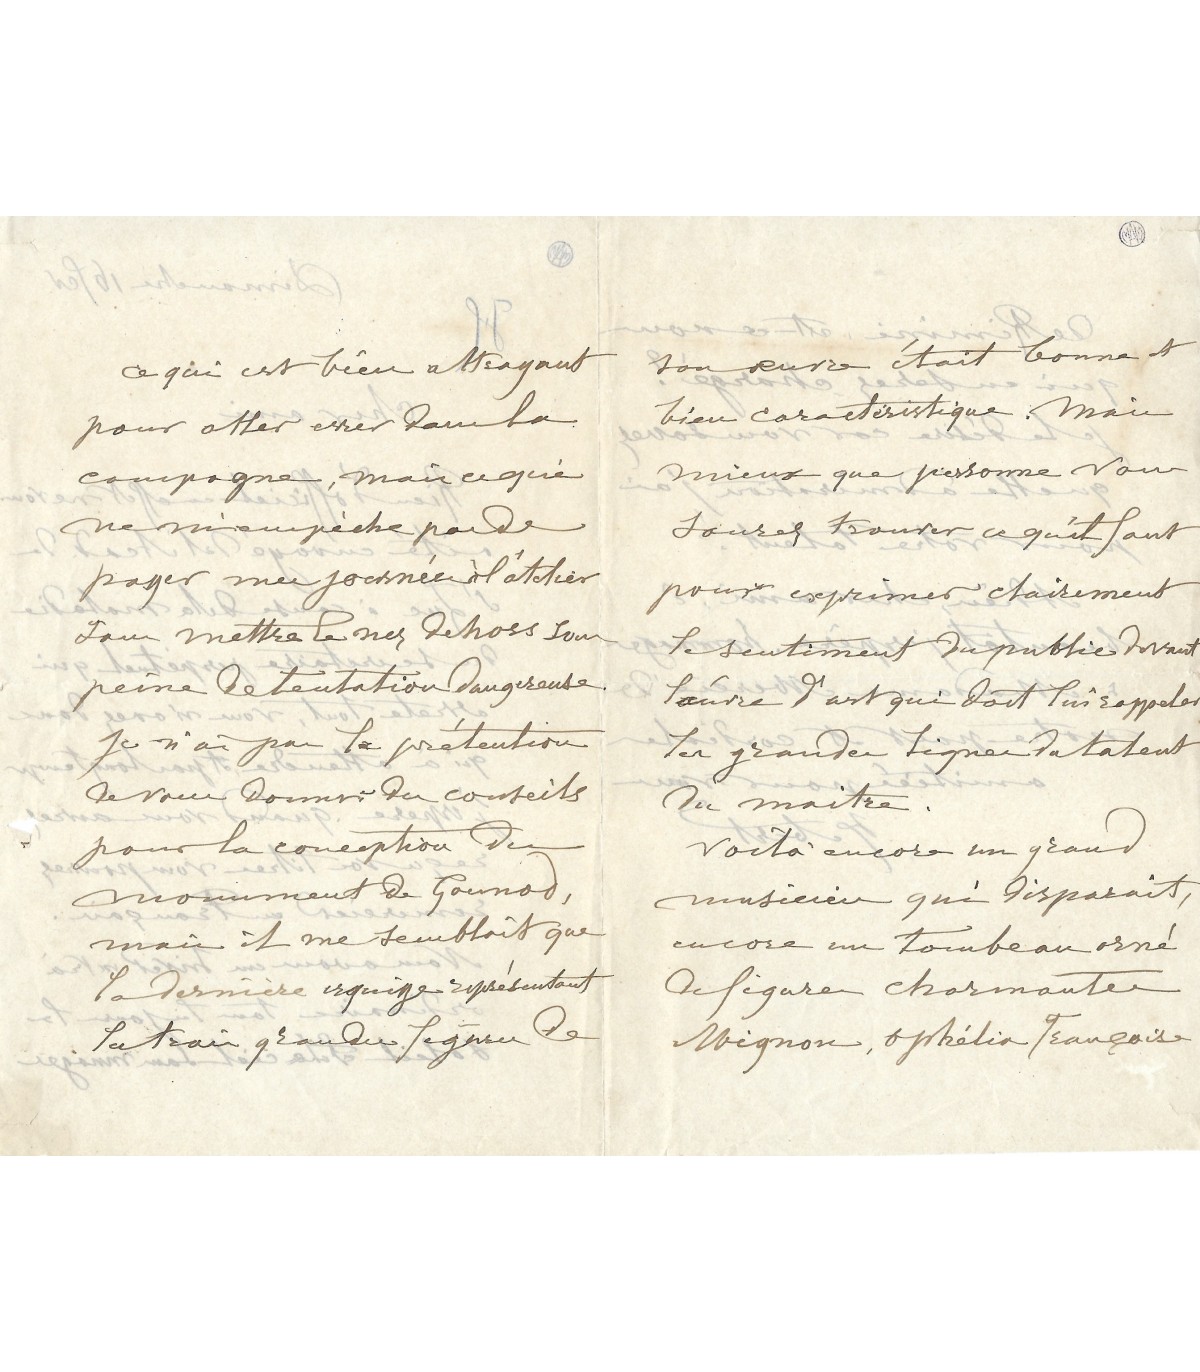 ce qui est bien attrayant
pour aller errer dans la
campagne, mais ce qui
ne m'empêche pas de
passer mes journées à l'atelier
sans mettre le nez dehors sous
peine de tentation dangereuse.
Je n'ai pas la prétention
de vous donner des conseils
pour la conception du
monument de Gounod,
mais il me semblait que
la dernière esquisse représentant
les trois grandes figures de
son œuvre était bonne et
bien caractéristique. Mais
mieux que personne vous
saurez trouver ce qu'il faut
pour exprimer clairement
le sentiment du public devant
l'œuvre d'art qui doit lui rappeler
les grandes lignes du talent
du maitre.
Voilà encore un grand
musicien qui disparait,
encore un tombeau orné
de figures charmantes
Mignon, Ophélia Françoise